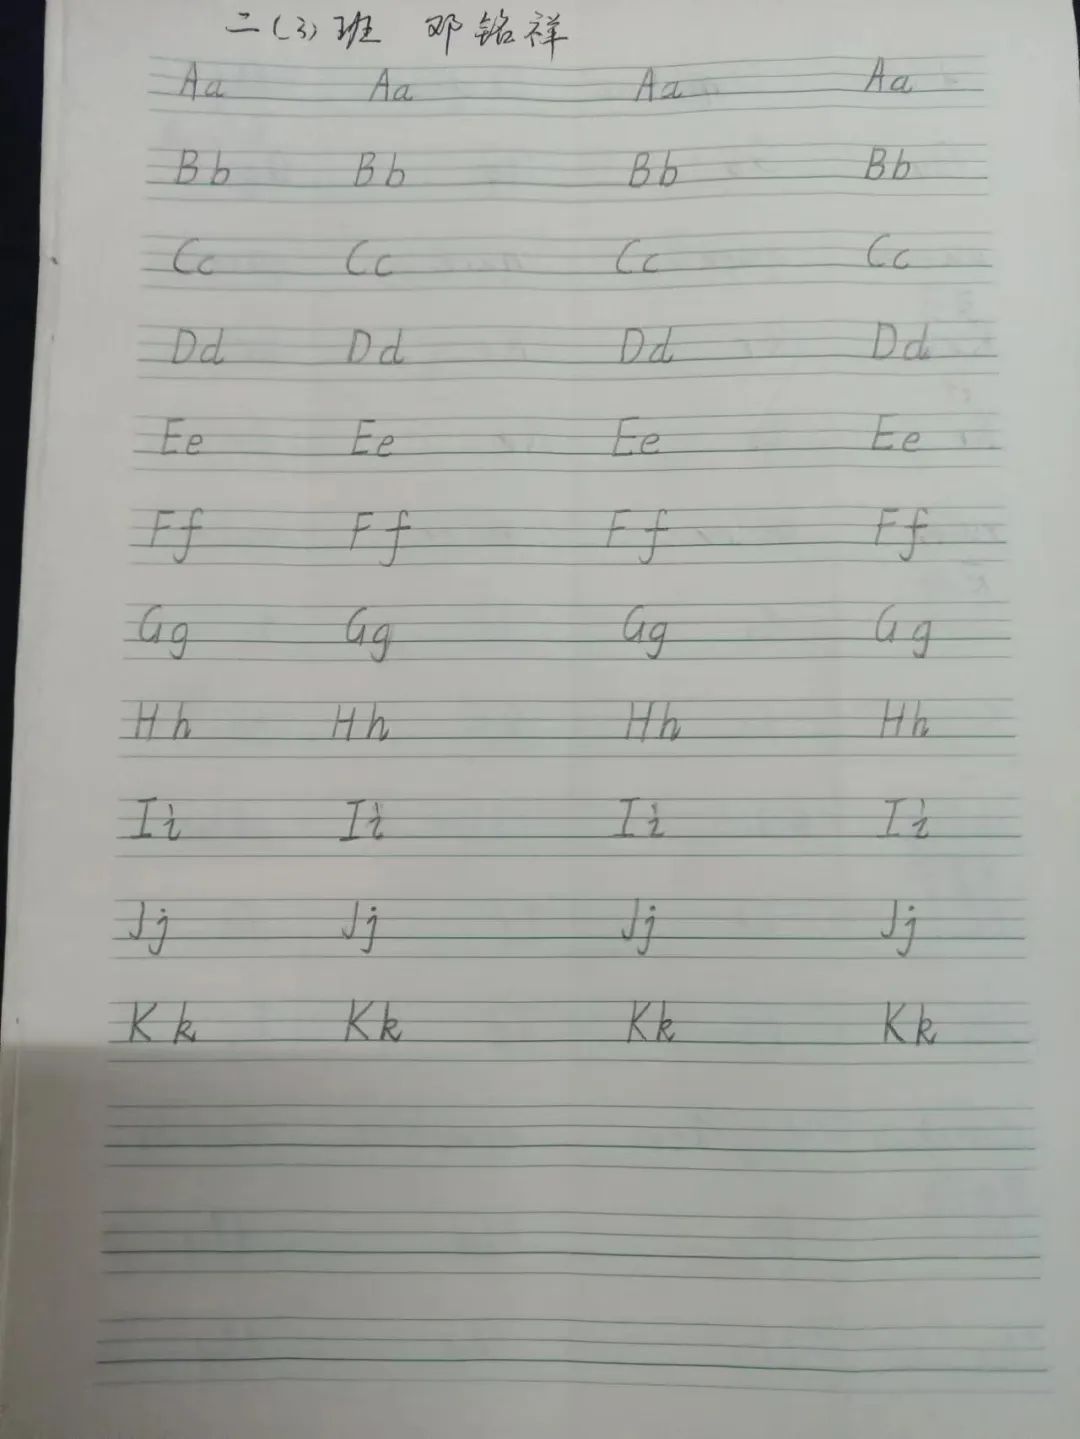 二(3)班 邓铭祥
Aa Aa Aa Aa
Bb Bb Bb Bb
Cc Cc Cc Cc
Dd Dd Dd Dd
Ee Ee Ee Ee
Ff Ff Ff Ff
Gg Gg Gg Gg
Hh Hh Hh Hh
Ii Ii Ii Ii
Jj Jj Jj Jj
Kk Kk Kk Kk